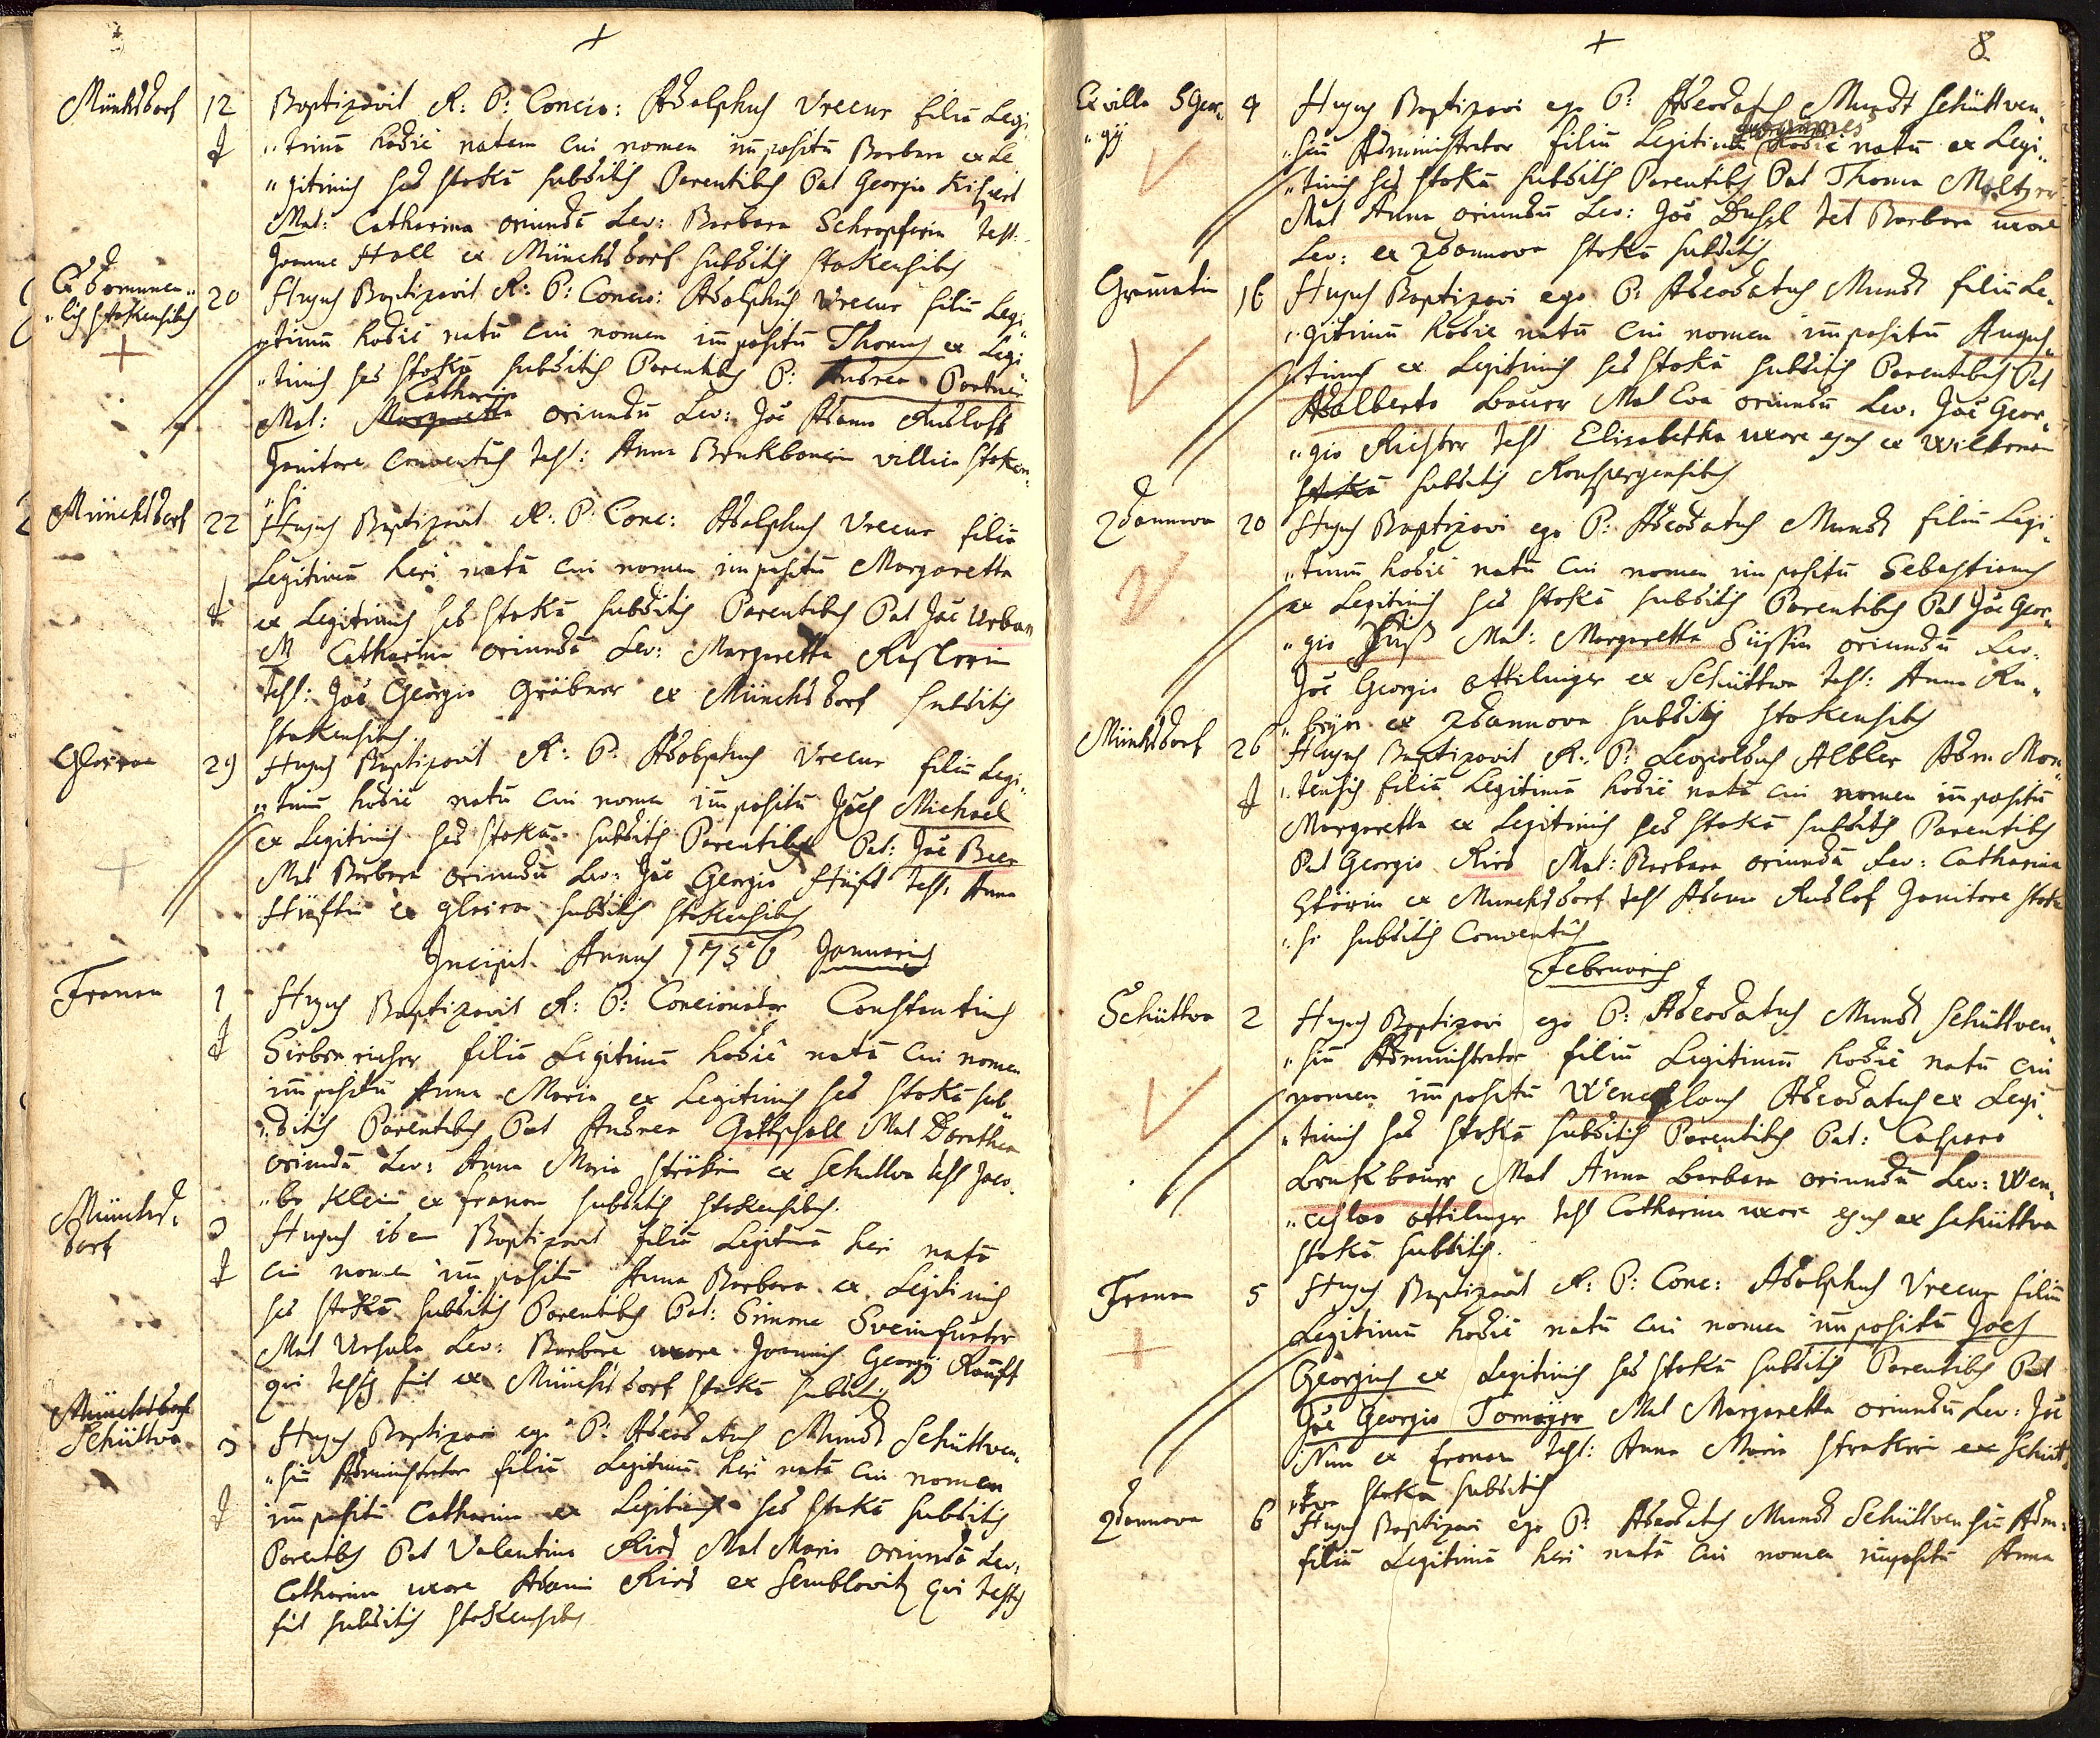 +
Münchsdorf 12 Baptizavit R: P: Concio: Adolphus Vrecur filiā Legi
"timā hodie natam cui nomen impositū Barbara ex Le
"gitimis sed stokā subditis Parentibus Pat Georgio
Mat: Catharina oriundā Lev: Barbara Schropferin test:
Joanne Holl ex Münchsdorf subditis stokensibus
20 Huius Baptizavit R: P: Concio: Adolphus Vrecur filiū Legi
"timū hodie natū cui nomen impositū Thomas ex Legi
"timis sed stokā subditis Parentibus P: Andrea Portner
Catharina
Mat: Margaretta oriundū Lev: Joe Adamo Rudloff
Janitore Conventus test: Anna Brukbaurin villica stoken
"si
Münchsdorf 22 Huius Baptizavit R: P: Conc: Adolphus Vrecur filiā
Legitimā heri natā cui nomen impositū Margaretta
ex Legitimis sed stokā subditis Parentibus Pat Joe Urban
M Catharina oriundā Lev: Margaretta
test: Joe Georgio Gröbner ex Münchsdorf subditis
stokensibus.
29 Huius Baptizavit R: P: Adolphus Vrecur filiū Legi
"timū hodie natū cui nomen impositū Joes Michael
ex Legitimis sed stokā subditis Parentibus Pat: Joe Beer
Mat Barbara oriundū Lev: Joe Georgio Hüft test: Anna
Hüftin ex subditis stokensibus
Incipit Annus 1756 Januarius
Fronau 1 Huius Baptizavit R: P: Concionator Constantinus
filiā Legitimā hodie natā cui nomen
impositū Anna Maria ex Legitimis sed stokā sub
"ditis Parentibus Pat Andrea Gottschall Mat Dorothea
oriundā Lev: Anna Maria ex Schuttwa test Jaco
"bo Klein ex fronau subditis stokensibus.
Münchs
dorf 3 Huius idem Baptizavit filiā Legitimā heri natā
cui nomen impositū Anna Barbara ex Legitimis
sed stokā subditis Parentibus Pat: Simone Sveinfurter
Mat Ursula Lev: Barbara uxore Joannis Georgij
qui testis fuit ex Münchsdorf stokā subditis
Münchsdorf
Schüttva 3 Huius Baptizavi ego P: Adeodatus Mundt Schüttven
"siū Administrator filiā Legitimā heri natā cui nomen
impositū Catharina ex Legitimis sed stokā subditis
Parentibus Pat Valentino Ried Mat Maria oriundā Lev:
Catharina uxore Adami Ried ex Semblovitz qui testis
fuit subditis stokensibus
+
8
Ex villa S Geor
"gij 9 Huius Baptizavi ego P: Adeodatus Mundt Schüttven
Joannes
"siū Administrator filiū Legitimū hodie natū ex Legi
"timis sed stokā subditis Parentibus Pat Thoma
Mat Anna oriundū Lev: Joe tet Barbara uxore
Lev: ex Zdannova stokā subditis
Gramatin 16 Huius Baptizavi ego P: Adeodatus Mundt filiū Le
"gitimū hodie natū cui nomen impositū Augus
"tinus ex Legitimis sed stokā subditis Parentibus Pat
Adalberto Bauer Mat Eva oriundū Lev: Joe Geor
"gio Richter test Elisabetha uxore ejus ex
stokā subditis Ronspergensibus
Zdannova 20 Huius Baptizavi ego P: Adeodatus Mundt filiū Legi
"timū hodie natū cui nomen impositū Sebastianus
ex Legitimis sed stokā subditis Parentibus Pat Joe Geor
"gio Mat: Margaretta oriundū Lev:
Joe Georgio Ottilinger ex Schüttwa test: Anna
ex Zdannova subditis stokensibus
Münchsdorf 26 Huius Baptizavit R: P: Leopoldus Albler Adm Mon
"tensis filiā Legitimā hodie natā cui nomen impositū
Margaretta ex Legitimis sed stokā subditis Parentibus
Pat Georgio Ried Mat: Barbara oriundā Lev: Catharina
ex Munchsdorf test Adamo Rudlof Janitore stoke
subditis Conventus
Februarius
Schüttva 2 Huius Baptizavi ego P: Adeodatus Mundt Schüttven
"siū Administrator filiū Legitimū hodie natū cui
nomen impositū Wenceslaus Adeodatus ex Legi
"timis sed stokā subditis Parentibus Pat: Casparo
Brukbauer Mat Anna Barbara oriundū Lev: Wen
"ceslao Ottilinger test Catharina uxore ejus ex Schüttva
stokā subditis.
Fronau 5 Huius Baptizavit R: P: Conc: Adolphus Vrecur filiū
Legitimū hodie natū cui nomen impositū Joes
Georgius ex Legitimis sed stokā subditis Parentibus Pat
Joe Georgio Tomayer Mat Margaretta oriundū Lev: Joe
ex fronau test: Anna Maria ex Schüt
stokā subditis
Zdannova 6 Huius Baptizavi ego P: Adeodatus Mundt Schüttvensiū Adm:
filiā Legitimā heri natā cui nomen impositū Anna